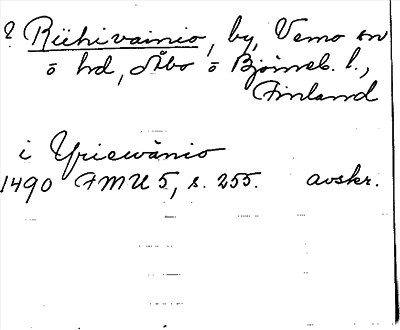 ? Riihivainio, by, Vemo sn
ö hd, Åbo ö Björneb. l.,
Finland
i Yriewänio
1490 FMU 5, s. 255. avskr.